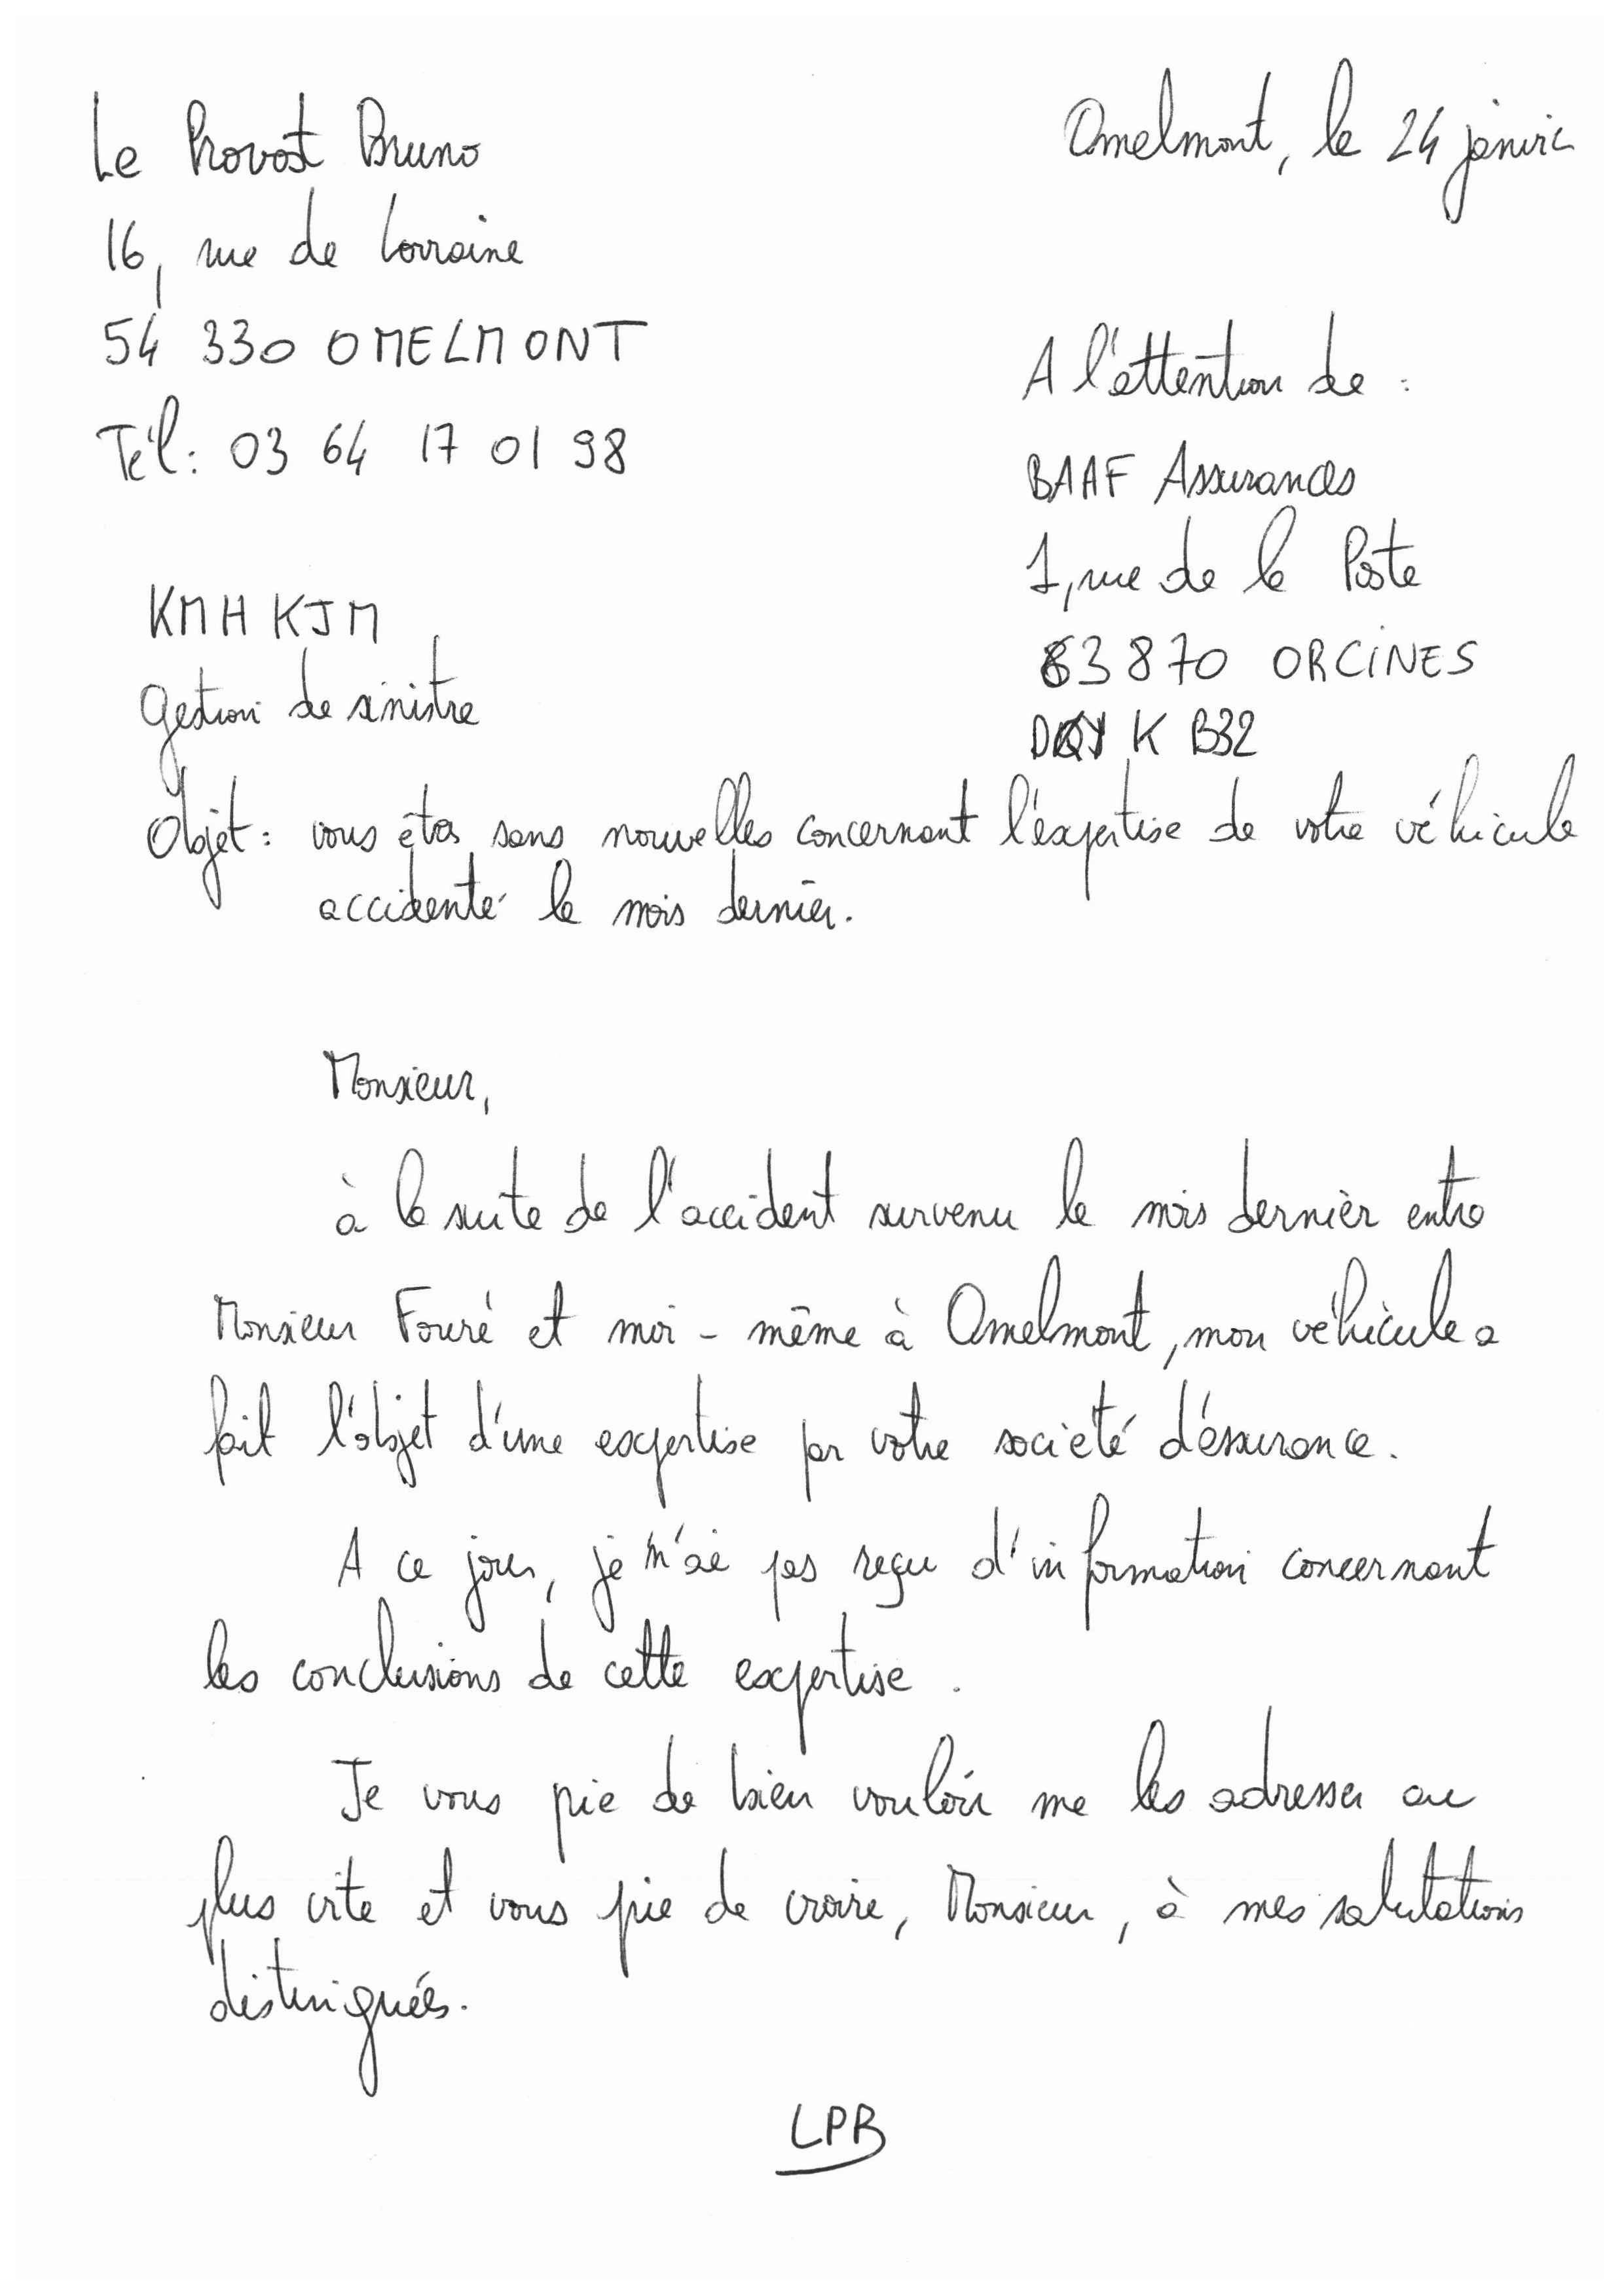 Le Provost Bruno
16, rue de Lorraine
54 330 OMELMONT
Tél: 03 64 17 01 98
Omelmont, le 24 janvie
A l'attention de :
BAAF Assurances
1, rue de la Poste
63 870 ORCINES
K B32
KMH KJM
gestion de sinistre
Objet : vous êtes sans nouvelles concernant l'expertise de votre véhicule
accidenté le mois dernier.
Monsieur,
à la suite de l'accident survenu le mois dernier entre
Monsieur Fouré et moi - même à Omelmont, mon véhicule a
fait l'objet d'une expertise par votre société d'assurance.
A ce jour, je n'ai pas reçu d'information concernant
les conclusions de cette expertise.
Je vous prie de bien vouloir me les adresser au
plus vite et vous prie de croire, Monsieur, à mes salutations
distinguées.
LPB